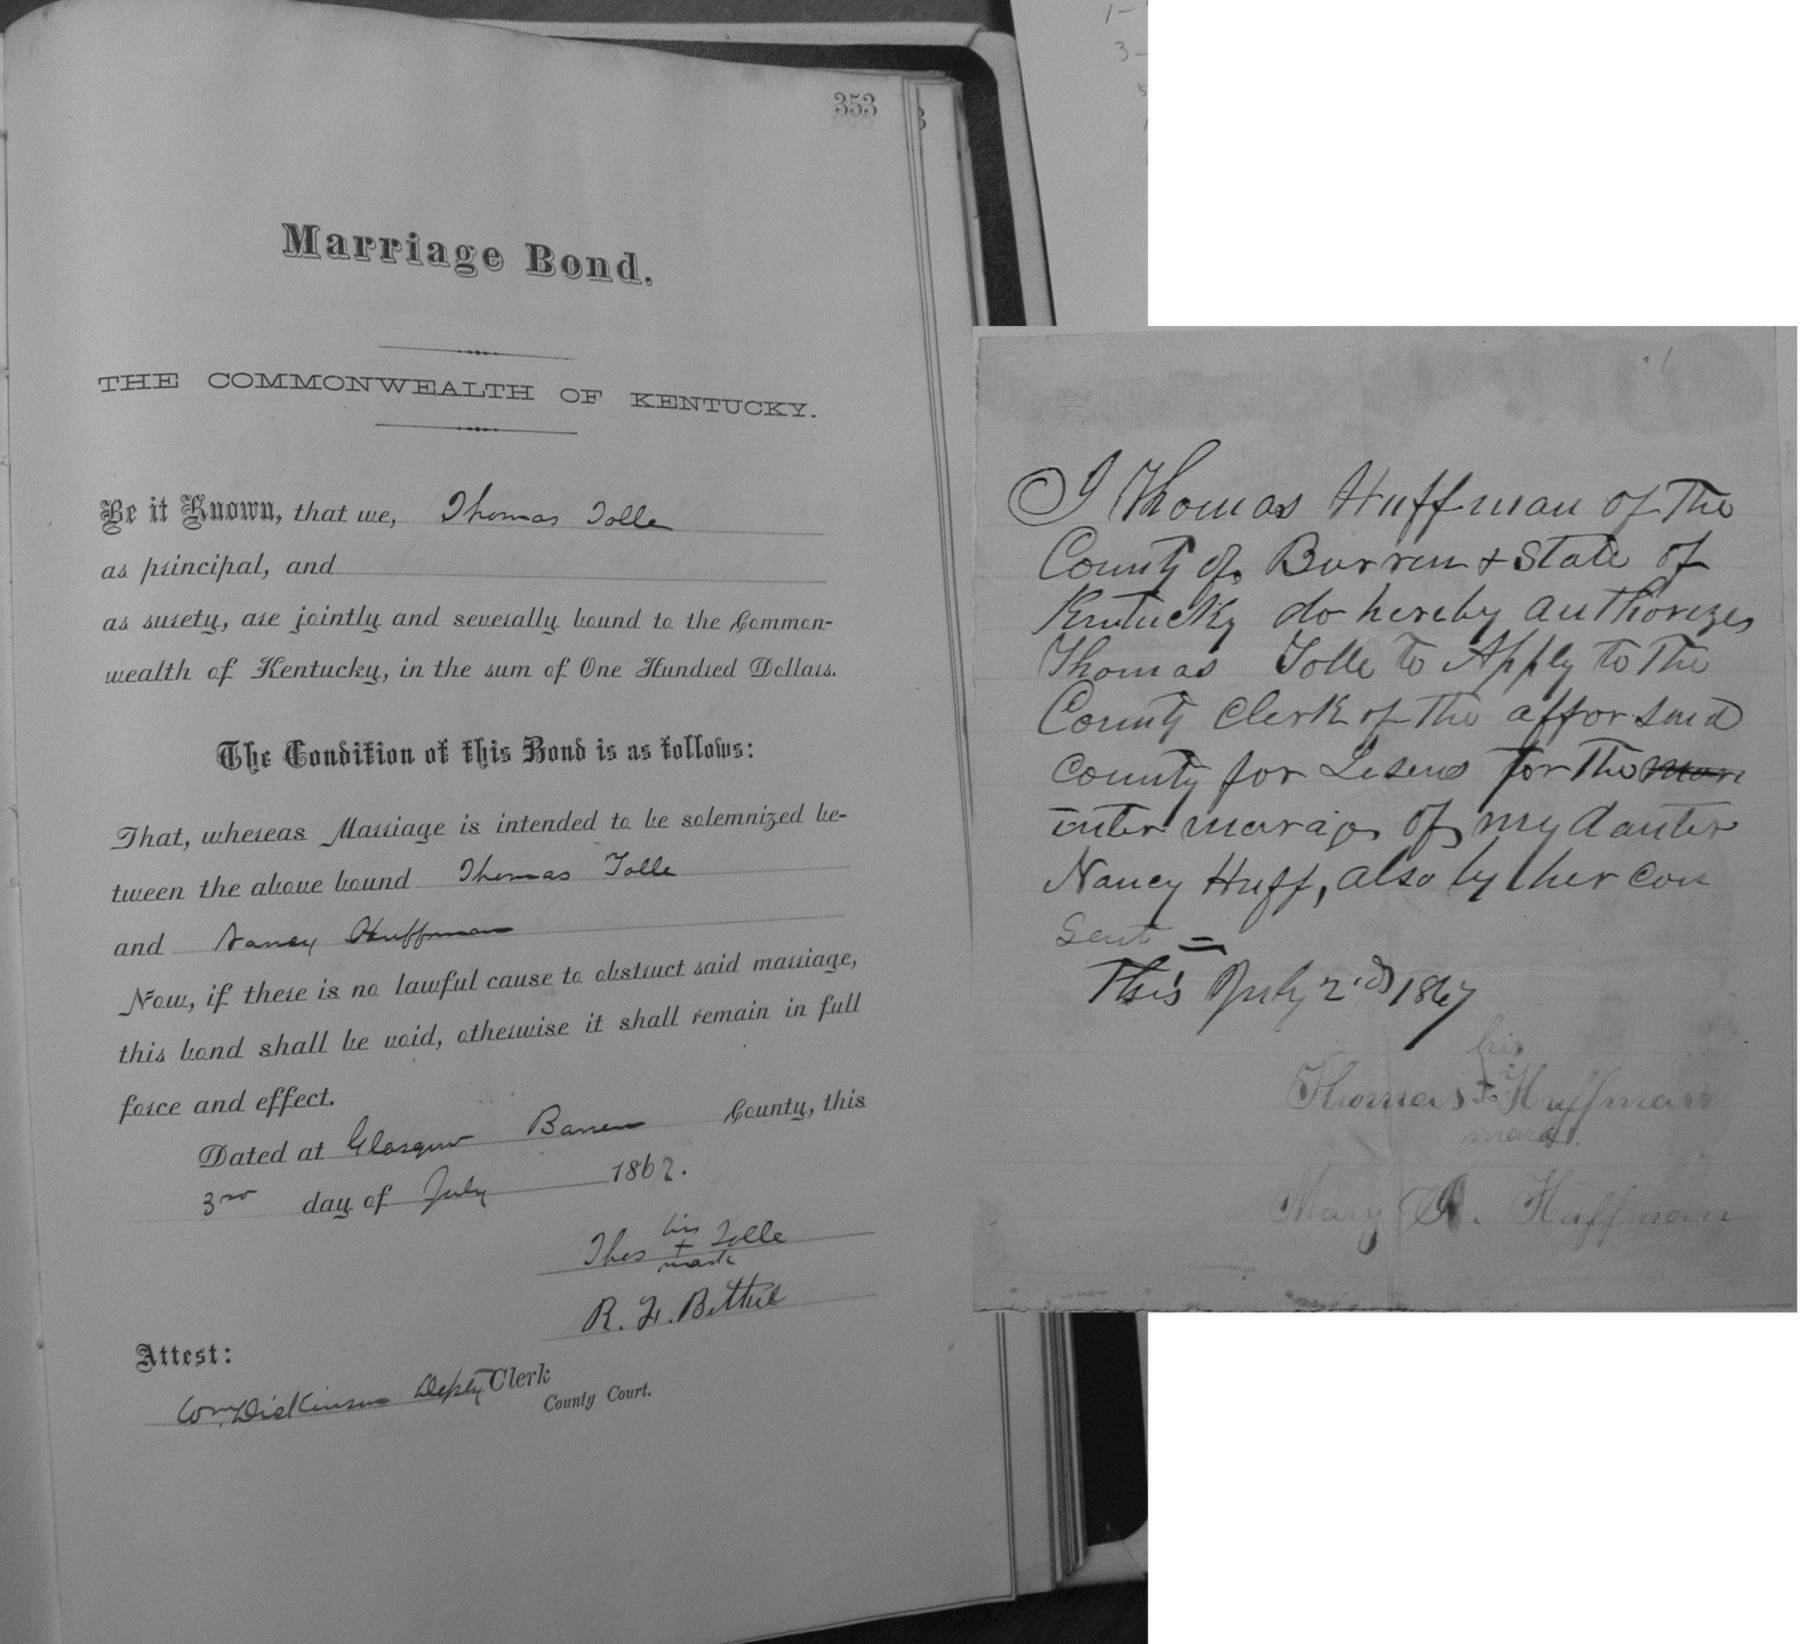 353
Marriage Bond.
THE COMMONWEALTH OF KENTUCKY.
Be it Known, that we, Thomas Tolle
as principal, and
as surety, are jointly and severally bound to the Common-
wealth of Kentucky, in the sum of One Hundred Dollars.
The Condition of this Bond is as follows:
That, whereas Marriage is intended to be solemnized be-
tween the above bound Thomas Tolle
and Nancy Huffman
Now, if there is no lawful cause to obstruct said marriage,
this bond shall be void, otherwise it shall remain in full
force and effect.
Dated at Glasgow Barren County, this
3rd day of July 1867.
his
Thos + Tolle
mark
R. F. Bethel
Attest:
Wm Dickinson Depty Clerk
County Court.
I Thomas Huffman of The
County of Barren & State of
Kentucky do hereby authorizes
Thomas Tolle to Apply to The
County Clerk of the afforsaid
County for Lisens for The
inter marajs of my dauter
Nancy Huff, also by her con
sent =
This July 2nd 1867
his
Thomas + Huffman
mark.
Mary A. Huffman